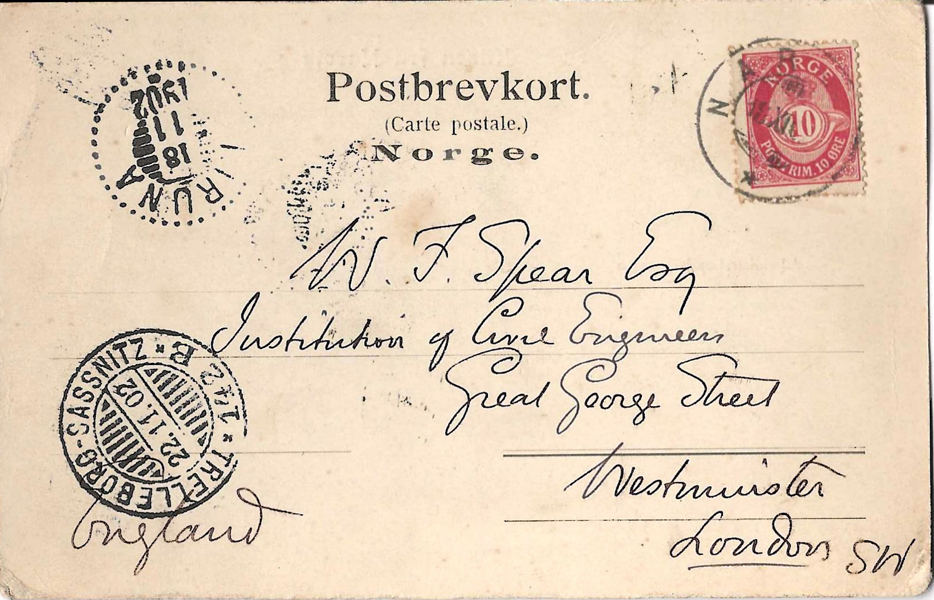 Postbrevkort.
(Carte postale.)
Norge.
NORGE
10
POSTFRIM. 10 ØRE
NAR
1902
11
18
IRUNA
W. F. Spear Esq
Institution of Civil Engineers
Great George Street
Westminster
London SW
England
TRELLEBORG-SASSNITZ * 142 B *
22.11.02